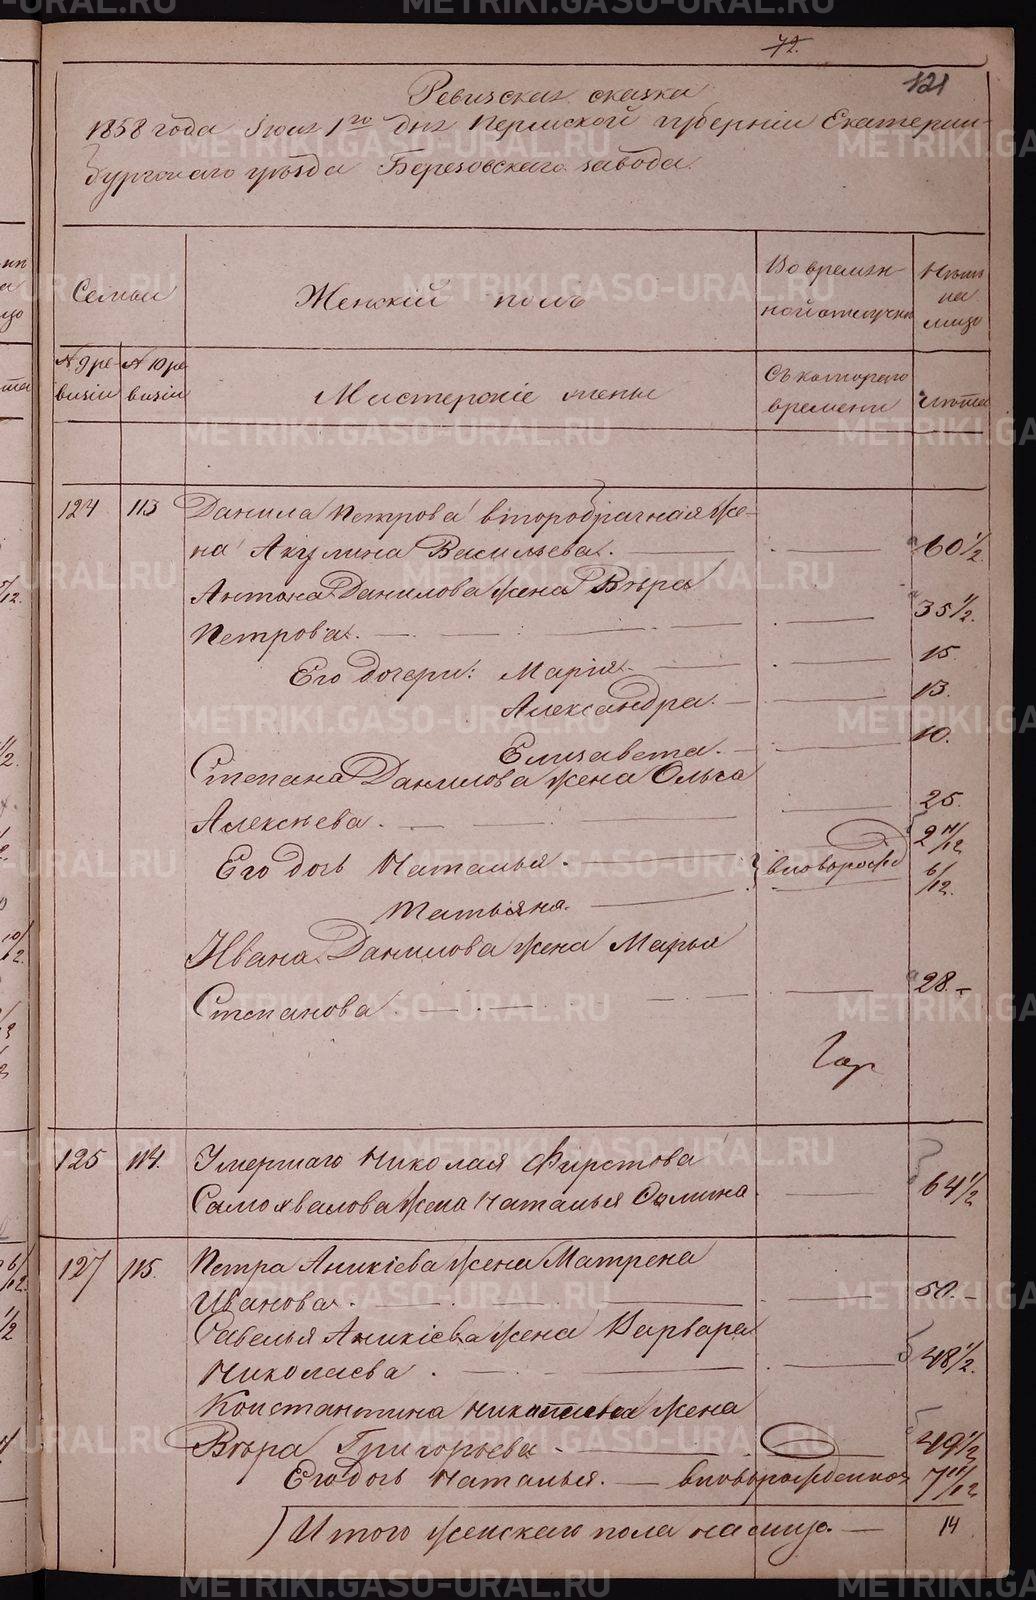 72.
121
Ревизская сказка
1858 года Июня 1го дня Пермской губернiи Екатерин-
бургскаго уѣзда Березовскаго завода.
Семьи
Женскiй полъ
Во времян-
ной отлучкѣ
Нынѣ
на
лицо
№ 9 ре-
визiи
№ 10 ре
визiи
Мастерскiе жены
Съ котораго
времени
лѣта
124 113 Данила Петрова второбрачная же-
на Акулина Васильева. 60 1/2
Антона Данилова жена Вѣра
Петрова. 35 1/2.
Его дочери: Марiя. 15.
Александра. 13.
Елизавета. 10.
Степана Данилова жена Ольга
Алексѣева. 25.
Его дочь Наталья. вновьрожд 2 11/12
Татьяна. 6/12.
Ивана Данилова жена Марья
Степанова 28.
125 114. Умершаго Николая Фирстова
Самохвалова жена Наталья 64 1/2
127 115. Петра Аникiева жена Матрена
Иванова. 50.
Савелья Аникiева жена Варвара
Николаева. 48 1/2.
Константина жена
Вѣра Григорьева 49 1/2
Его дочь Наталья. вновьрожденная 7 11/12
Итого женскаго пола на лицо. 14
METRIKI.GASO-URAL.RU